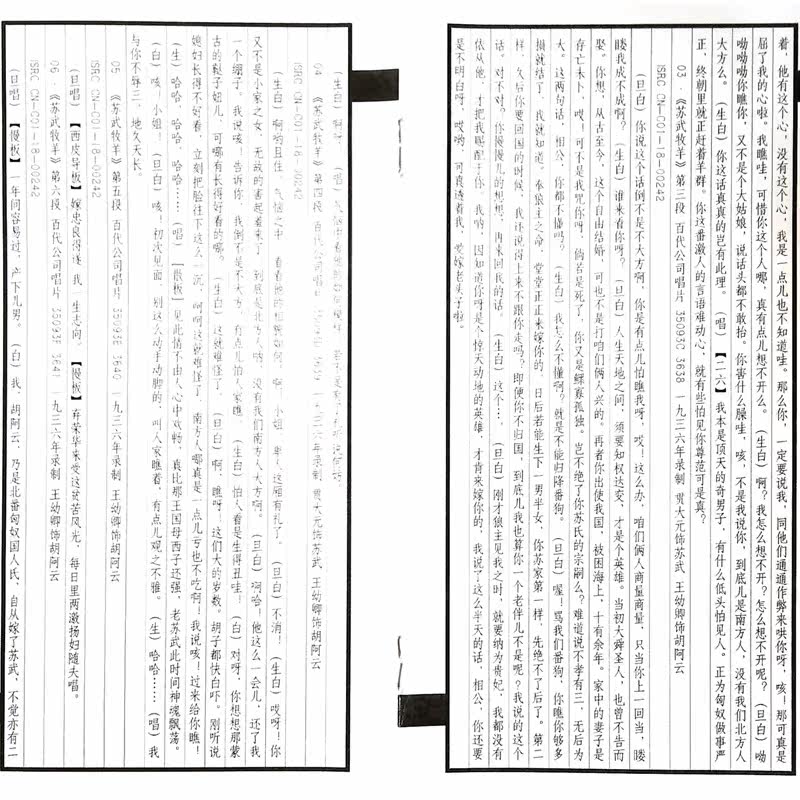 着，他有这个心，没有这个心，我是一点儿也不知道哇。那么你，一定要说我，同他们通通作弊来哄你呀，咳！那可真是
屈了我的心啦。我瞧哇，可惜你这个人哪，真有点儿想不开么。（生白）啊？我怎么想不开？怎么想不开呢？（旦白）呦
呦呦呦你瞧你，又不是个大姑娘，说话头都不敢抬。你害什么臊哇，咳，不是我说你，到底儿是南方人，没有我们北方人
大方么。（生白）你这话真真的岂有此理。（唱）【二六】我本是顶天的奇男子，有什么低头怕见人。正为匈奴做事严
正，终朝里就正赶着羊群。你这番激人的言语难动心，就有些怕见你尊范可是真？
ISRC CN-C01-18-00242
03．《苏武牧羊》第三段 百代公司唱片 35093C 3638 一九三六年录制 贯大元饰苏武 王幼卿饰胡阿云
（旦白）你说这个话倒不是不大方啊，你是有点儿怕瞧我呀，哎！这么办，咱们俩人商量商量，只当你上一回当，瞜
瞜我成不成啊？（生白）谁来看你呀？（旦白）人生天地之间，须要知权达变，才是个英雄。当初大舜圣人，也曾不告而
娶。你想，从古至今，这个自由结婚，可也不是打咱们俩人兴的。再者你出使我国，被困海上，十有余年。家中的妻子是
存亡未卜，哎！可不是我咒你呀，倘若是死了，你又是鳏寡孤独。岂不绝了你苏氏的宗嗣么？难道说不孝有三，无后为
大。这两句话，相公，你都不懂吗？（生白）我怎么不懂啊？就是不能归降番狗。（旦白）喔！骂我们番狗，你瞧你够多
损就结了，我就知道。奉狼主之命，堂堂正正来嫁你的，日后若能生下一男半女，你苏家第一样，先绝不了后了。第二
样，久后你要回国的时候，我还说得上来不跟你走吗？即便你不归国，到底儿我也算你一个老伴儿不是呢？我说的这个
话，对不对。你慢慢儿的想想，再来回我的话。（生白）这个…（旦白）刚才狼主见我之时，就要纳为贵妃，我都没有
依从他，才把我赐配于你，我哟，因知道你呀是个惊天动地的英雄，才肯来嫁你的，我说了这么半天的话，相公，你还要
是不明白呀，哎哟，可真透着我，爱嫁老头子啦。
04．《苏武牧羊》第四段 百代公司唱片 一九三六年录制 贯大元饰苏武 王幼卿饰胡阿云
ISRC CN-C01-18-00242
（生白）啊哟且住，（旦白）不消！（生白）哎呀！你
又不是小家之女，无故的害起羞来了，到底是北方人哟，没有我们南方人大方啊。（旦白）啊哈！他这么一会儿，还了我
一个绷子，我说咳！告诉你，我倒不是不大方，有点儿怕人家瞧。（生白）怕人看是生得丑哇！（白）对呀，你想想那蒙
古的鞑子妞儿，可哪有长得好看的哪。（生白）这就难怪了。（旦白）啊，瞧呀，这们大的岁数。胡子都快白吓。刚听说
媳妇长得不好看，立刻把脸往下这么一沉，呵呵这就难怪了，南方人哪真是一点儿亏也不吃啊！我说咳！过来给你瞧！
（生）哈哈，哈哈，哈哈……（唱）【散板】见此情不由人心中欢畅，真比那王国母西子还强，老苏武此时间神魂飘荡。
（白）咳，小姐！（旦白）咳！初次见面，别这么动手动脚的，叫人家瞧着，有点儿观之不雅。（生）哈哈……（唱）我
与你不算三，地久天长。
05．《苏武牧羊》第五段 百代公司唱片 35093E 3640 一九三六年录制 王幼卿饰胡阿云
ISRC CN-C01-18-00242
（旦唱）【西皮导板】嫁忠良得遂我一生志向，【慢板】弃荣华来受这贫苦风光，每日里两激扬妇随夫唱。
06．《苏武牧羊》第六段 百代公司唱片 35093E 3641 一九三六年录制 王幼卿饰胡阿云
ISRC CN-C01-18-00242
（旦唱）【慢板】一年间容易过，产下儿男。（白）我，胡阿云，乃是北番匈奴国人氏，自从嫁了苏武，不觉亦有二